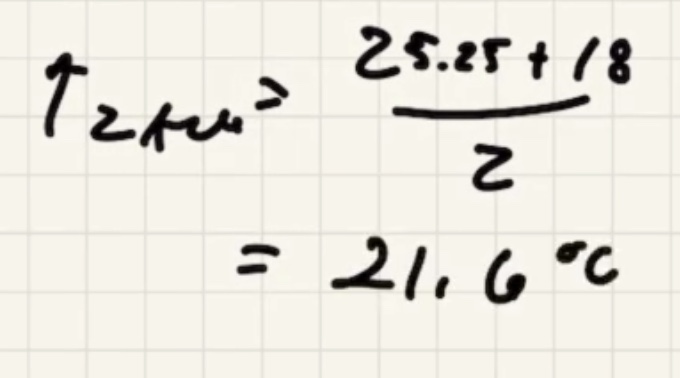 T2km = 25.25 + 18
2
= 21.6 °C